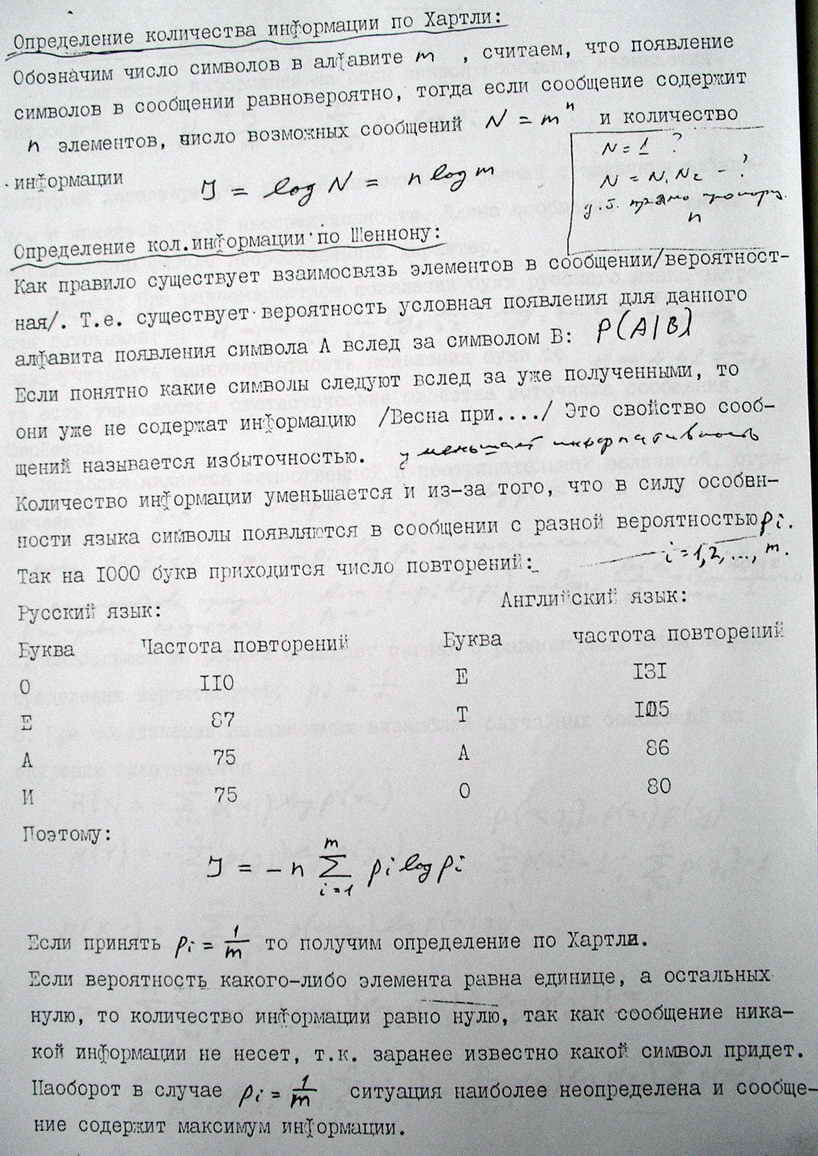 Определение количества информации по Хартли:
Обозначим число символов в алфавите m , считаем, что появление
символов в сообщении равновероятно, тогда если сообщение содержит
n элементов, число возможных сообщений N = m^n и количество
информации J = log N = n log m
N = 1 ?
N = N₁ N₂ - ?
д.б. прямо пропорц.
n
Определение кол.информации по Шеннону:
Как правило существует взаимосвязь элементов в сообщении/вероятност-
ная/. Т.е. существует вероятность условная появления для данного
алфавита появления символа А вслед за символом В: P(A|B)
Если понятно какие символы следуют вслед за уже полученными, то
они уже не содержат информацию /Весна при..../ Это свойство сооб-
щений называется избыточностью. уменьшает информативность
Количество информации уменьшается и из-за того, что в силу особен-
ности языка символы появляются в сообщении с разной вероятностью pi.
Так на 1000 букв приходится число повторений: i = 1,2, ..., m.
Русский язык: Английский язык:
Буква Частота повторений Буква частота повторений
О 110 Е 131
Е 87 Т 105
А 75 А 86
И 75 О 80
Поэтому:
J = - n ∑ pi log pi
m
i=1
Если принять pi = 1/m то получим определение по Хартли.
Если вероятность какого-либо элемента равна единице, а остальных
нулю, то количество информации равно нулю, так как сообщение ника-
кой информации не несет, т.к. заранее известно какой символ придет.
Наоборот в случае pi = 1/m ситуация наиболее неопределена и сообще-
ние содержит максимум информации.